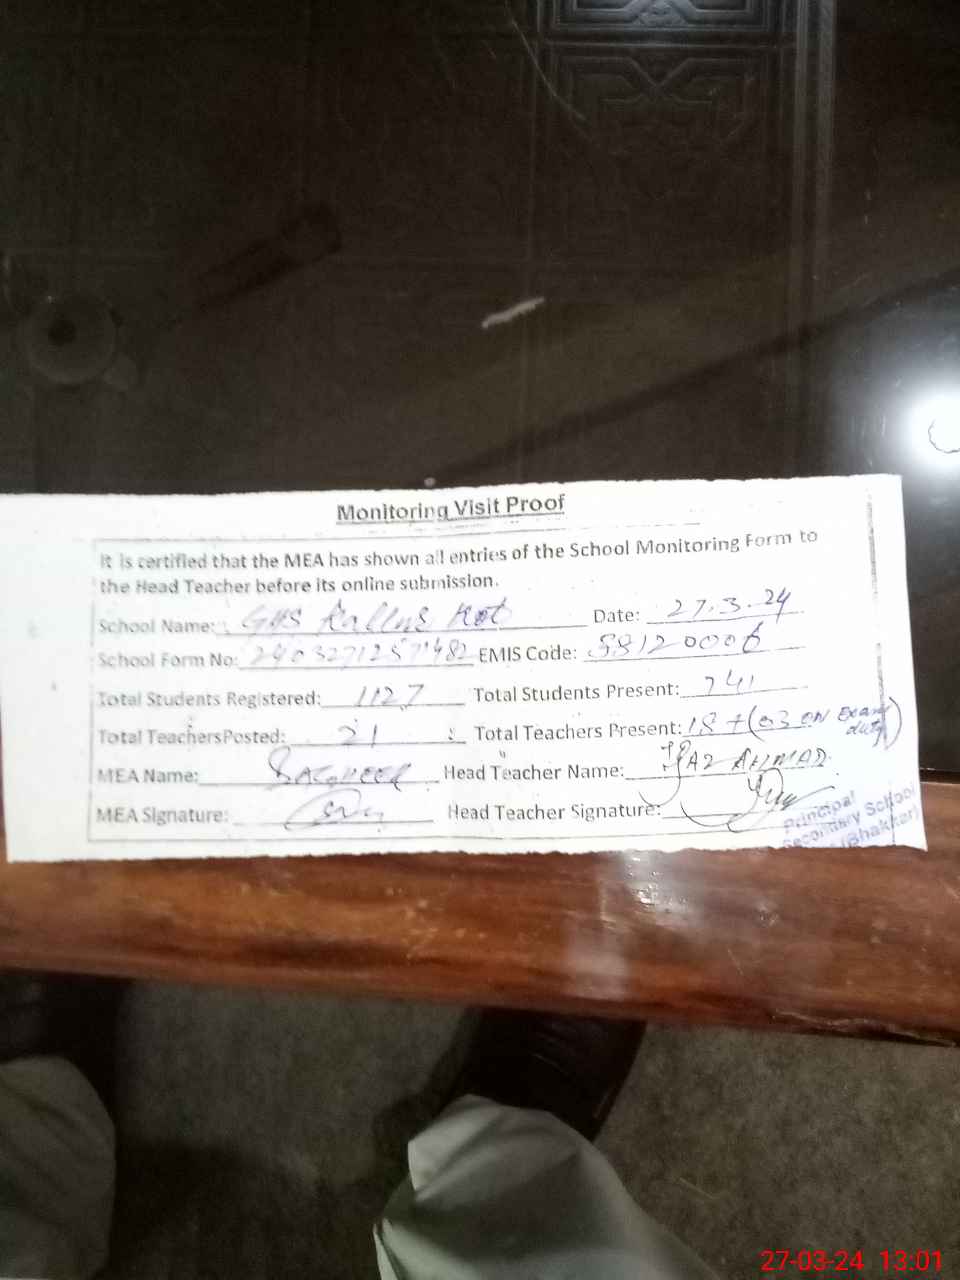 Monitoring Visit Proof
It is certified that the MEA has shown all entries of the School Monitoring Form to
the Head Teacher before its online submission.
School Name: GHS Kallur Kot Date: 27.3.24
School Form No: EMIS Code: 38120006
Total Students Registered: 1127 Total Students Present: 741
Total TeachersPosted: 21 Total Teachers Present: 18 + (03 on Exam duty)
MEA Name: Head Teacher Name: IJAZ AHMAD
MEA Signature: Head Teacher Signature:
Principal
Secondary School
(Bhakkar)
27-03-24 13:01